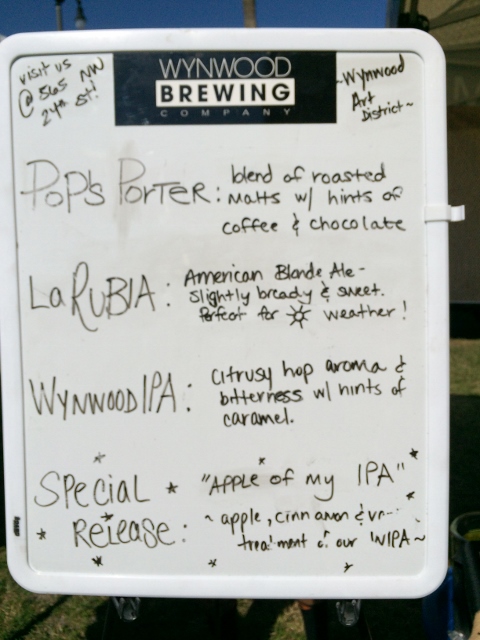 visit us
@ 565 NW
24th St!
WYNWOOD
BREWING
COMPANY
~Wynwood
Art
District~
POP'S PORTER:
blend of roasted
malts w/ hints of
coffee & chocolate
La RUBIA:
American Blonde Ale-
slightly bready & sweet.
Perfect for weather!
WYNWOOD IPA:
citrusy hop aroma &
bitterness w/ hints of
caramel.
SPECIAL
RELEASE:
"APPLE of my IPA"
~ apple, cinnamon &
treatment of our WIPA~